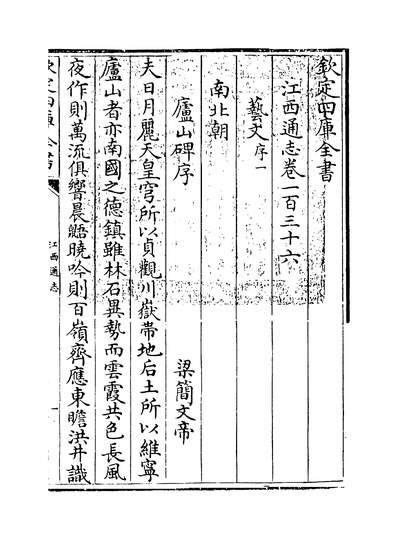 欽定四庫全書
江西通志卷一百三十六
藝文序一
南北朝
廬山碑序 梁簡文帝
夫日月麗天皇穹所以貞觀川嶽帶地后土所以維寧
廬山者亦南國之德鎮雖林石異勢而雲霞共色長風
夜作則萬流俱響晨鼯曉吟則百嶺齊應東瞻洪井識
欽定四庫全書
江西通志
一